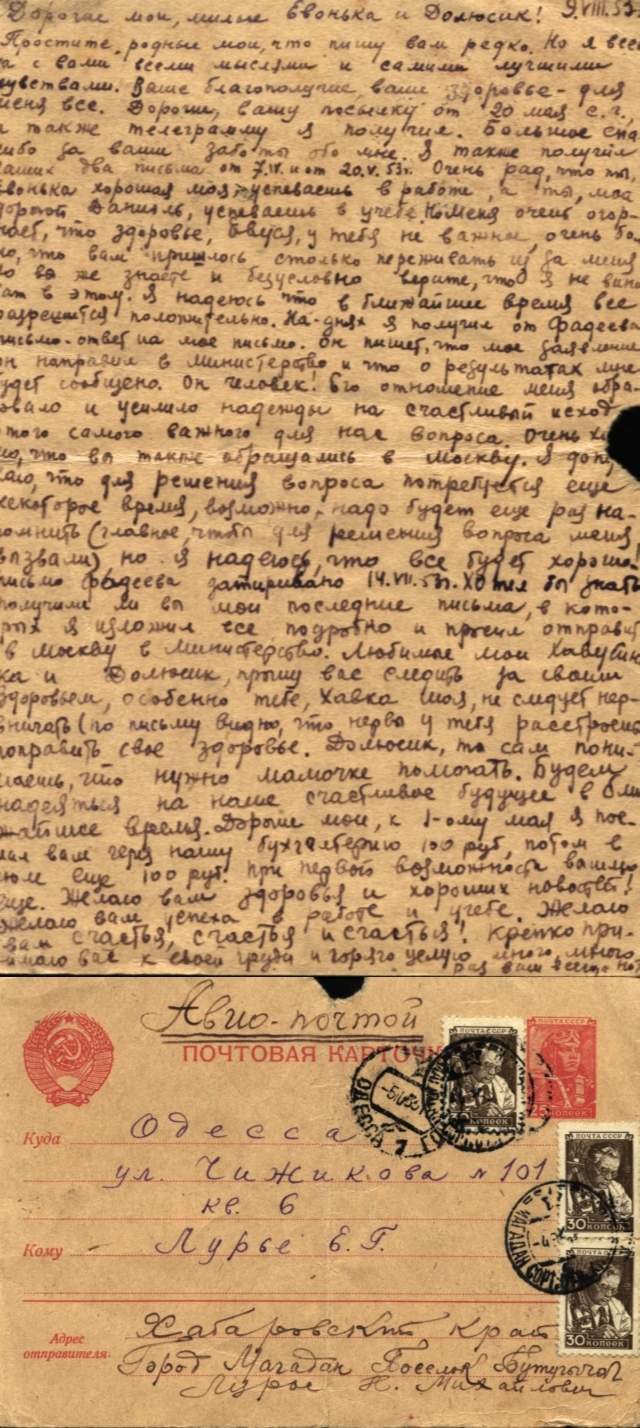 Дорогие мои, милые Евонька и Долюсик! 9.VIII.53
Простите, родные мои, что пишу вам редко. Но я всег
да с вами всеми мыслями и самими лучшими
чувствами. Ваше благополучие, ваше здоровье - для
меня все. Дорогие, вашу посылку от 20 мая с.г.,
а также телеграмму я получил. Большое спа
сибо за ваши заботы обо мне. Я также получил
ваших два письма от 7.IV. и от 20.V.53г. Очень рад, что ты,
Евонька хорошая моя, успеваешь в работе, а ты, мой
дорогой Даниэль, успеваешь в учебе. Но меня очень огор-
чает, что здоровье, у тебя не важное, очень бо
но, что вам пришлось столько переживать из за меня
но вы же знаете и безусловно верите, что я не вино
ват в этом. Я надеюсь что в ближайшее время все
разрешится положительно. На-днях я получил от Фадеева
письмо-ответ на мое письмо. Он пишет, что мое заявление
он направил в Министерство и что о результатах мне
будет сообщено. Он человек! Его отношение меня обра-
довало и усилило надежды на счастливый исход
этого самого важного для нас вопроса. Очень
что вы также обращались в Москву. Я
что для решения вопроса потребуется еще
некоторое время, возможно, надо будет еще раз на-
помнить (главное, чтобы для решения вопроса меня
вызвали), но я надеюсь, что все будет хорошо.
письмо Фадеева датировано 14.VII.53г. Хотел бы знать
получили ли вы мои последние письма, в кото-
рых я изложил все подробно и просил отправит
в Москву в Министерство. Любимые мои
ка и Долюсик, прошу вас следить за своим
здоровьем, особенно тебе, Хавка моя, не следует нер-
вничать (по письму видно, что нервы у тебя расстроены
поправить свое здоровье. Долюсик, ты сам пони-
маешь, что нужно мамочке помогать. Будем
надеяться на наше счастливое будущее в бли
жайшее время. Дорогие мои, к 1-ому мая я пос-
лал вам через нашу бухгалтерию 100 руб, потом в
еще 100 руб. при первой возможности вышлю
еще. Желаю вам здоровья и хороших новостей!
Желаю вам успеха в работе и учебе. Желаю
вам счастья, счастья и счастья! Крепко при-
жимаю вас к своей груди и горячо целую много, много
раз ваш
Авио-почтой
ПОЧТОВАЯ КАРТОЧК
ПОЧТА СССР
30 КОПЕЕК
25 КОПЕЕК
ОДЕССА
Куда Одесса
ул. Чижикова № 101
кв. 6
Кому Лурье Е.Г.
ПОЧТА СССР
30 КОПЕЕК
МАГАДАН
30 КОПЕЕК
Адрес отправителя: Хабаровский край
Город Магадан Поселок Бутугычаг
Лурье Н. Михайлович